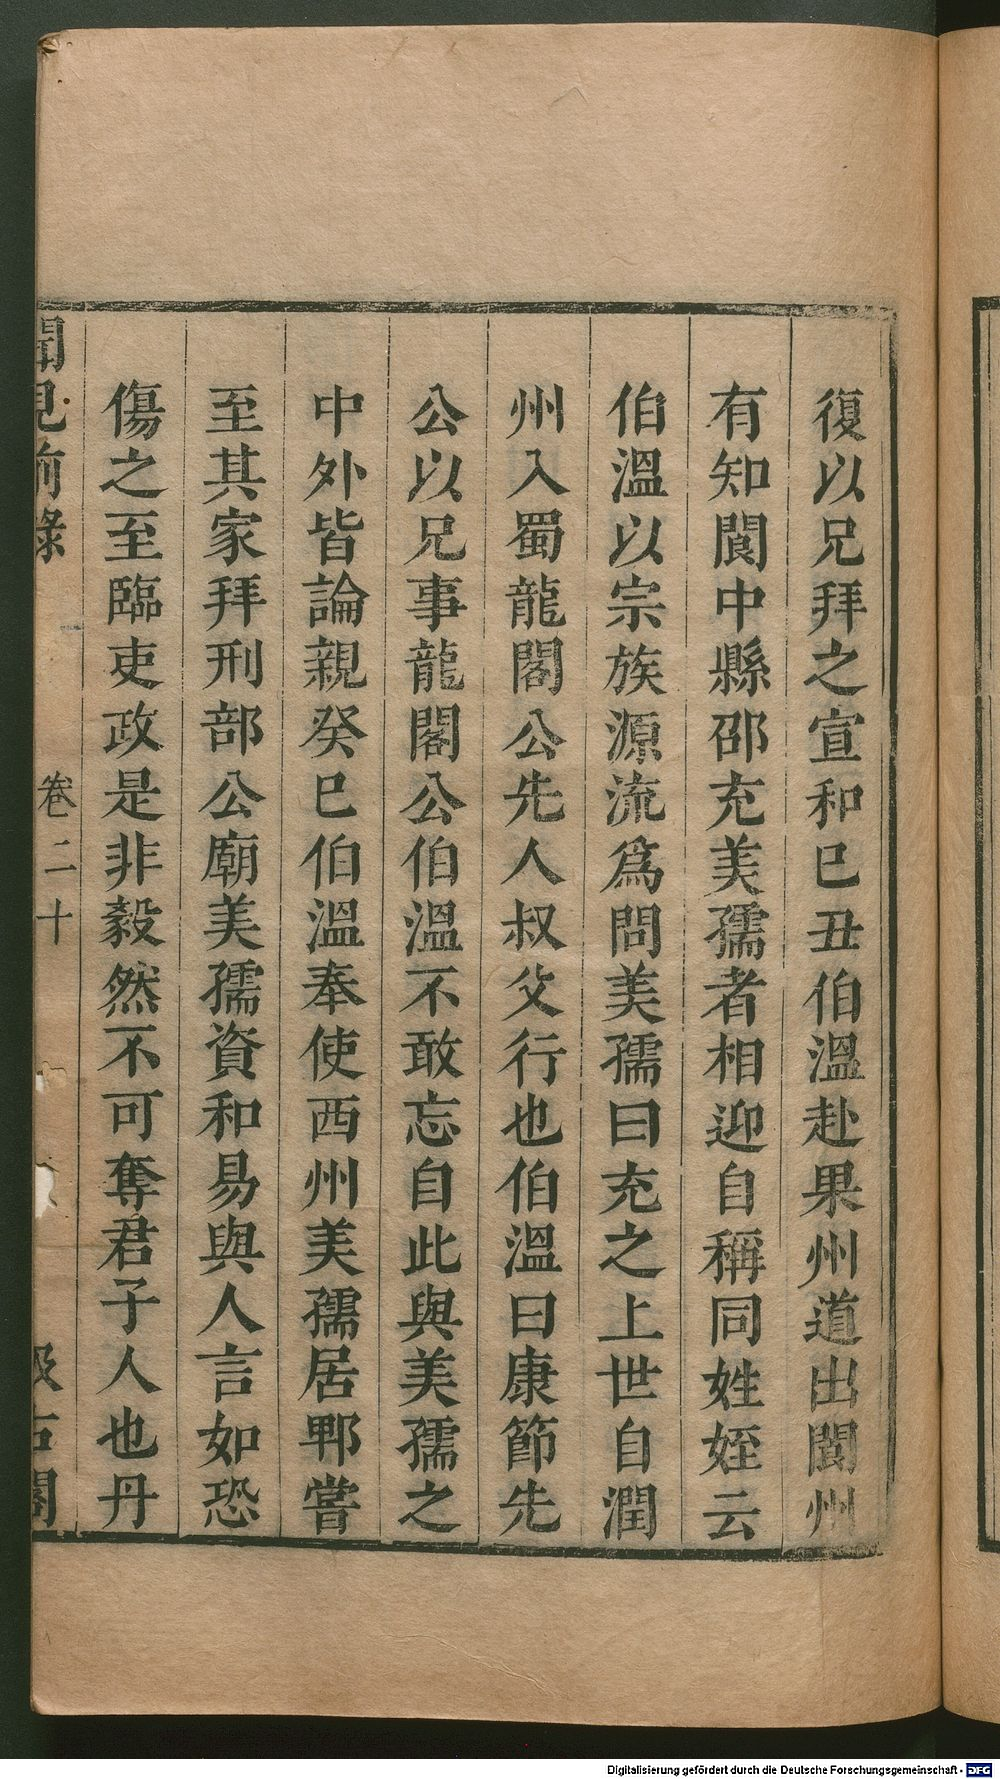 復以兄拜之宣和巳丑伯溫赴果州道出閬州
有知閬中縣邵充美孺者相迎自稱同姓姪云
伯溫以宗族源流爲問美孺曰充之上世自潤
州入蜀龍閣公先人叔父行也伯溫曰康節先
公以兄事龍閣公伯溫不敢忘自此與美孺之
中外皆論親癸巳伯溫奉使西州美孺居郫嘗
至其家拜刑部公廟美孺資和易與人言如恐
傷之至臨吏政是非毅然不可奪君子人也丹
聞見前錄 卷二十 汲古閣
Digitalisierung gefördert durch die Deutsche Forschungsgemeinschaft - DFG